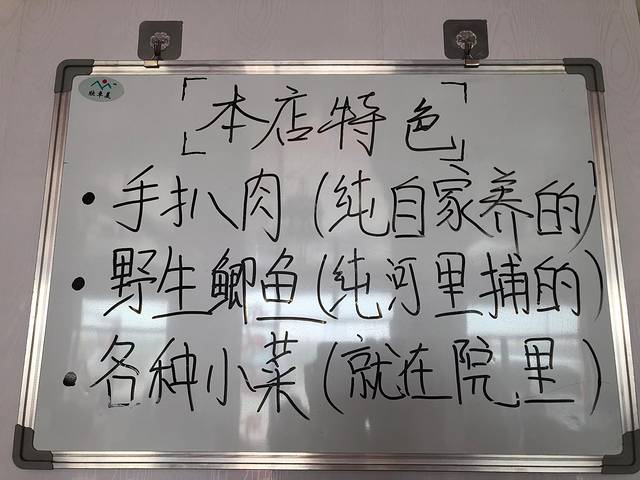 欣卓美
[本店特色]
• 手扒肉(纯自家养的)
• 野生鲫鱼(纯河里捕的)
• 各种小菜(就在院里)